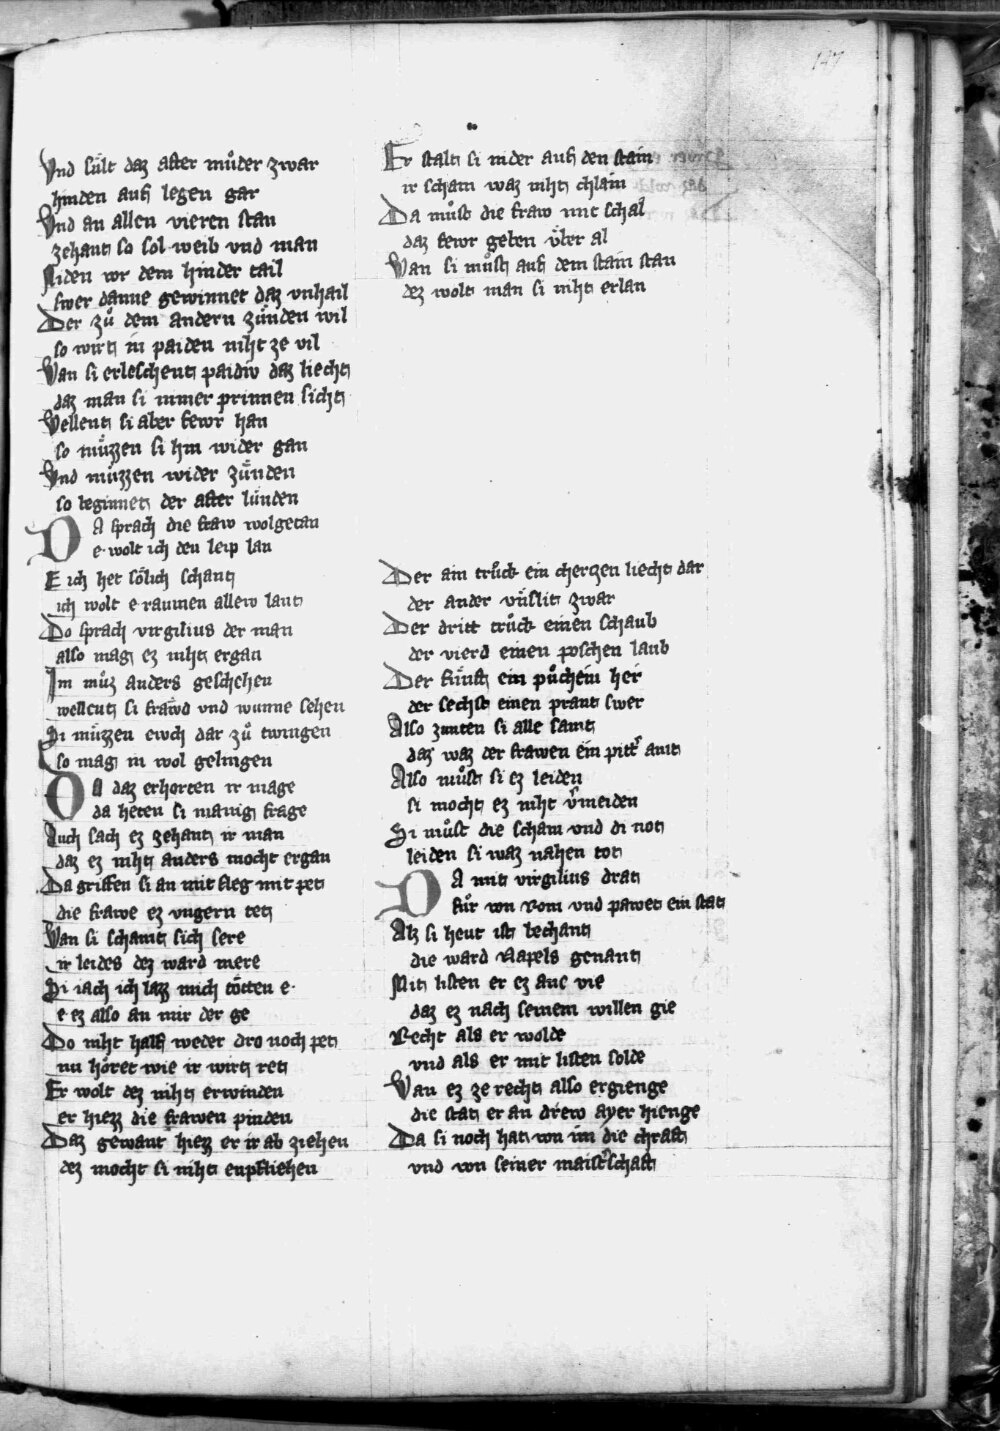 147
Vnd sült daz after muͦder zwar
hinden auf legen gar
Vnd an allen vieren stan
zehant so sol weib vnd man
Niden vor dem hinder tail
swer danne gewinnet daz vnhail
Der zuͦ dem andern zünden wil
so wirt in paiden niht ze vil
Wan si erleschent paidiv daz liecht
daz man si immer prinnen sicht
Wellent si aber fewr han
so muͤzzen si hin wider gan
Vnd muͤzzen wider zünden
so beginnet der after lünden
DA sprach die fraw wolgetan
e wolt ich den leip lan
E ich het soͤlich schant
ich wolt e raumen allew lant
Do sprach virgilius der man
also mag ez niht ergan
Im muͦz anders geschehen
wellent si fräwd vnd wunne sehen
Si muͤzzen ewch dar zuͦ twingen
so mag in wol gelingen
DA daz erhorten ir mage
da heten si manig frage
Auch sach ez zehant ir man
daz ez niht anders mocht ergan
Da griffen si an mit fleg mit pet
die frawe ez vngern tet
Wan si schamt sich sere
ir leides dez ward mere
Si iach ich lazz mich toͤtten e
e ez also an mir der ge
Do niht half weder dro noch pet
nu hoͤret wie ir wirt ret
Er wolt dez niht erwinden
er hiezz die frawen pinden
Daz gewant hiezz er ir ab ziehen
dez mocht si niht enpfliehen
Er stalt si nider auf den stain
ir scham waz niht chlain
Da muͦst die fraw mit schal
daz fewr geben über al
Wan si muͦst auf dem stain stan
dez wolt man si niht erlan
Der ain truͦch ein cherczen liecht dar
der ander vnslit zwar
Der dritt truͦch einen schaub
der vierd einen poschen laub
Der fünft ein puͤchein her
der sechst einen prant swer
Also zunten si alle samt
daz waz der frawen ein pitter amt
Also muͦst si ez leiden
si mocht ez niht vermeiden
Si muͦst die scham vnd di not
leiden si waz nahen tot
DA mit virgilius drat
fuͦr von Rom vnd pawet ein stat
Alz si heut ist bechant
die ward Napels genant
Mit listen er ez ane vie
daz ez nach seinem willen gie
Recht als er wolde
vnd als er mit listen solde
Wan ez ze recht also ergienge
die stat er an drew ayer hienge
Da si noch hat von im die chraft
vnd von seiner maisterschaft